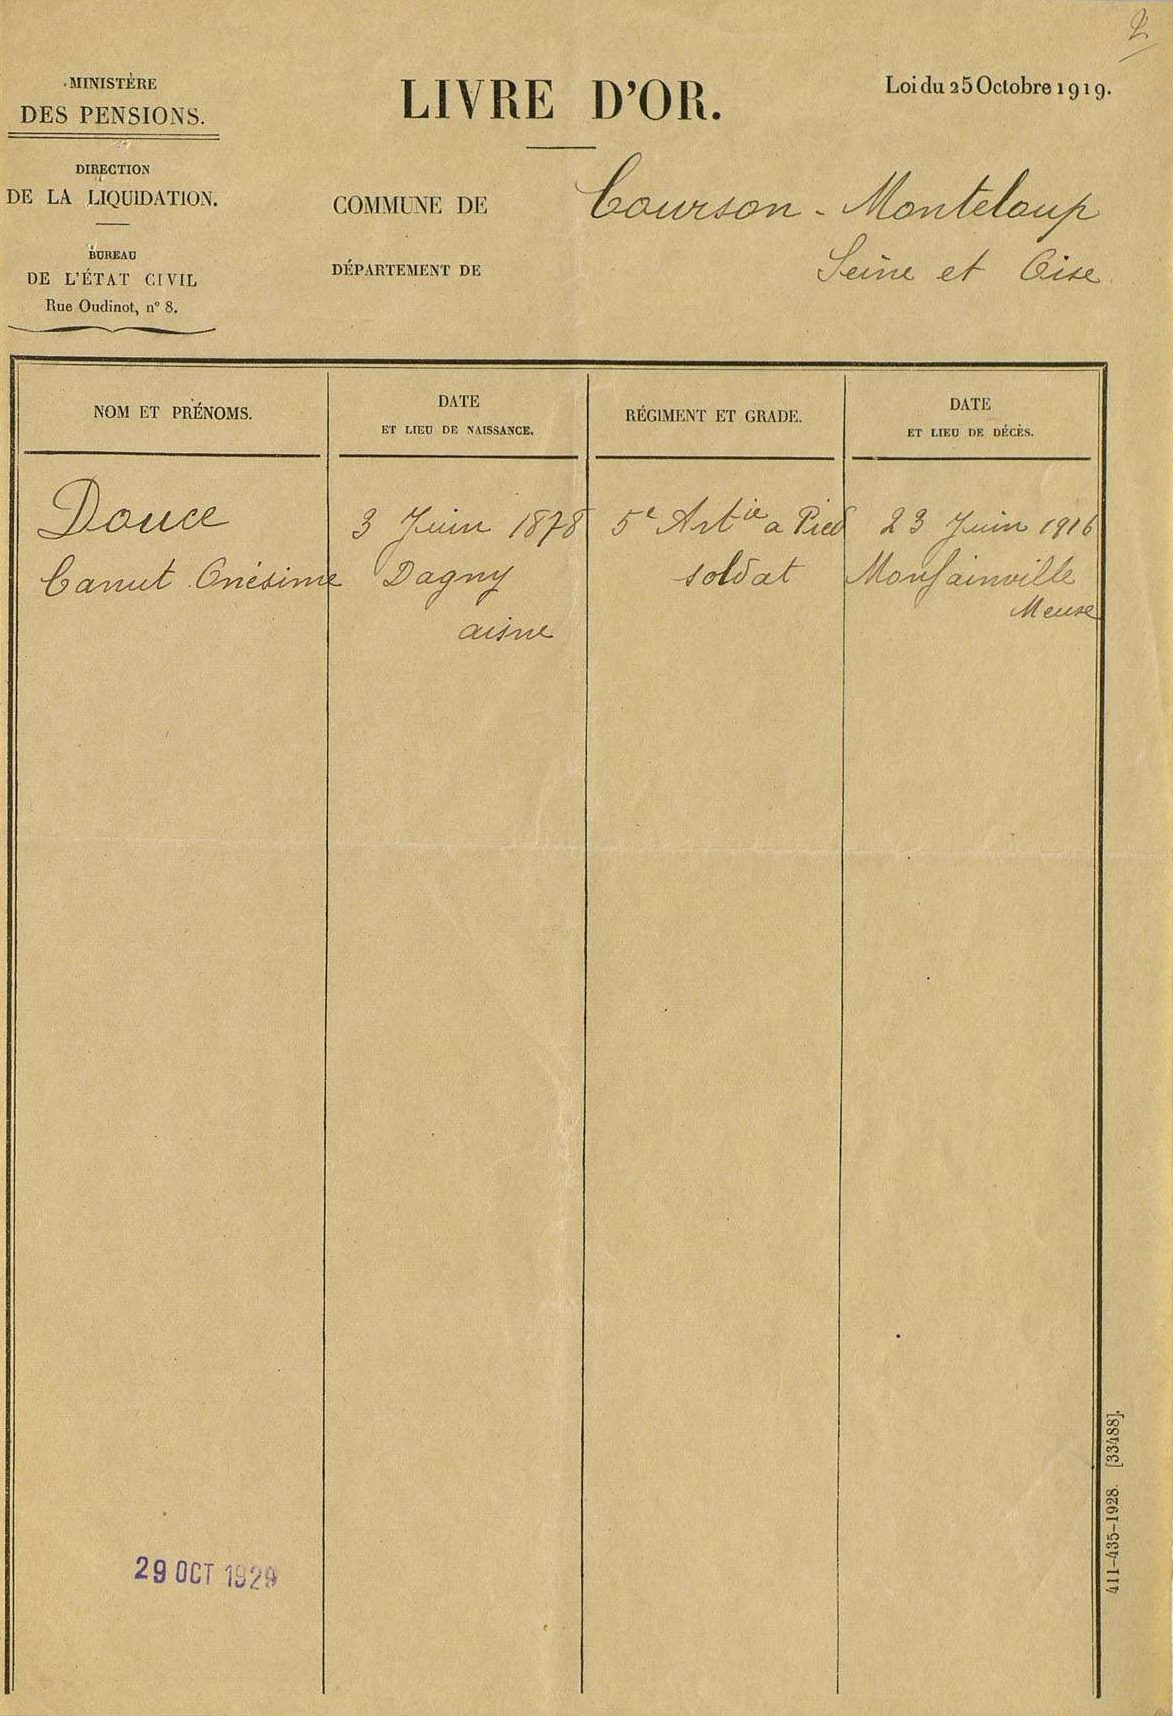 2
MINISTÈRE
DES PENSIONS.
DIRECTION
DE LA LIQUIDATION.
BUREAU
DE L'ÉTAT CIVIL
Rue Oudinot, n° 8.
LIVRE D'OR.
Loi du 25 Octobre 1919.
COMMUNE DE Courson - Monteloup
DÉPARTEMENT DE Seine et Oise
NOM ET PRÉNOMS.
DATE
ET LIEU DE NAISSANCE.
RÉGIMENT ET GRADE.
DATE
ET LIEU DE DÉCÈS.
Douce
Canut Onésime
3 Juin 1878
Dagny
aisne
5e Artie a Pied
soldat
23 Juin 1916
Meuse
29 OCT 1929
411-435-1928. [33488].